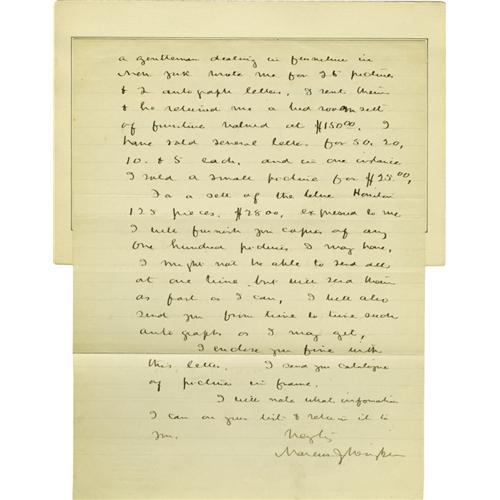 a gentleman dealing in furniture in
New York wrote me for 25 pictures
& 2 autograph letters. I sent them
& he returned me a bed room sett
of furniture valued at $150.00. I
have sold several letters for 50. 20,
10. & 5 each, and in one instance
I sold a small picture for $25.00,
For a sett of the blue
125 pieces. $28.00, expressed to me
I will furnish you copies of any
one hundred pictures I may have,
I might not be able to send all
at one time, but will send them
as fast as I can, I will also
send you from time to time such
autographs as I may get,
I enclose you five with
this letter. I send you catalogue
of pictures in frame.
I will note what information
I can on your list & return it to
you.
Marcus J Wright